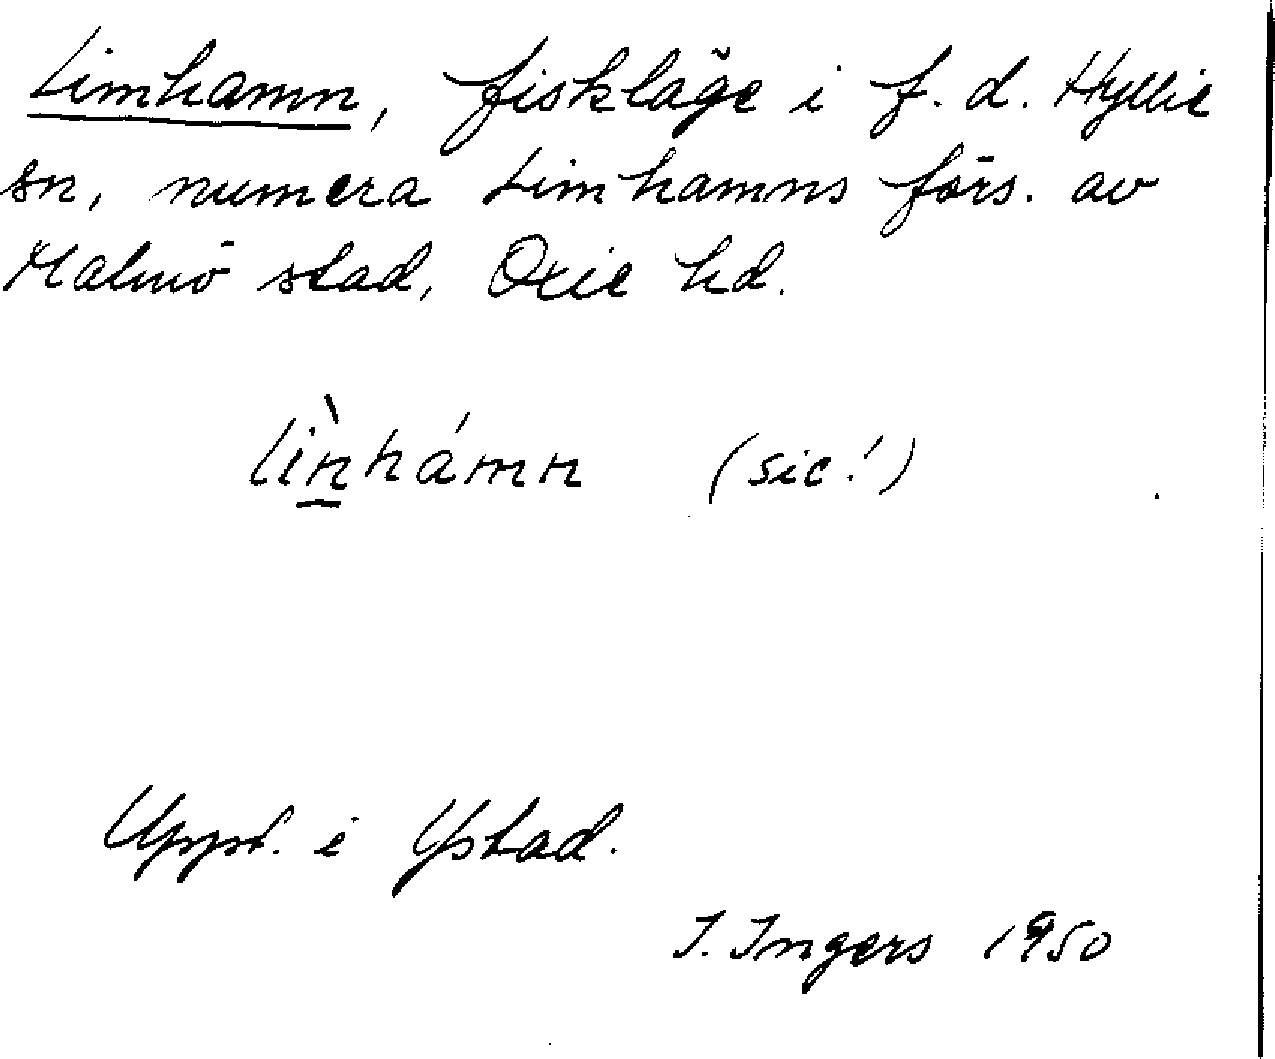 Limhamn, fiskläge i f. d. Hyllie
sn, numera Limhamns förs. av
Malmö stad, Oxie hd.
lìnhámn (sic!)
Uppt. i Ystad.
I. Ingers 1950